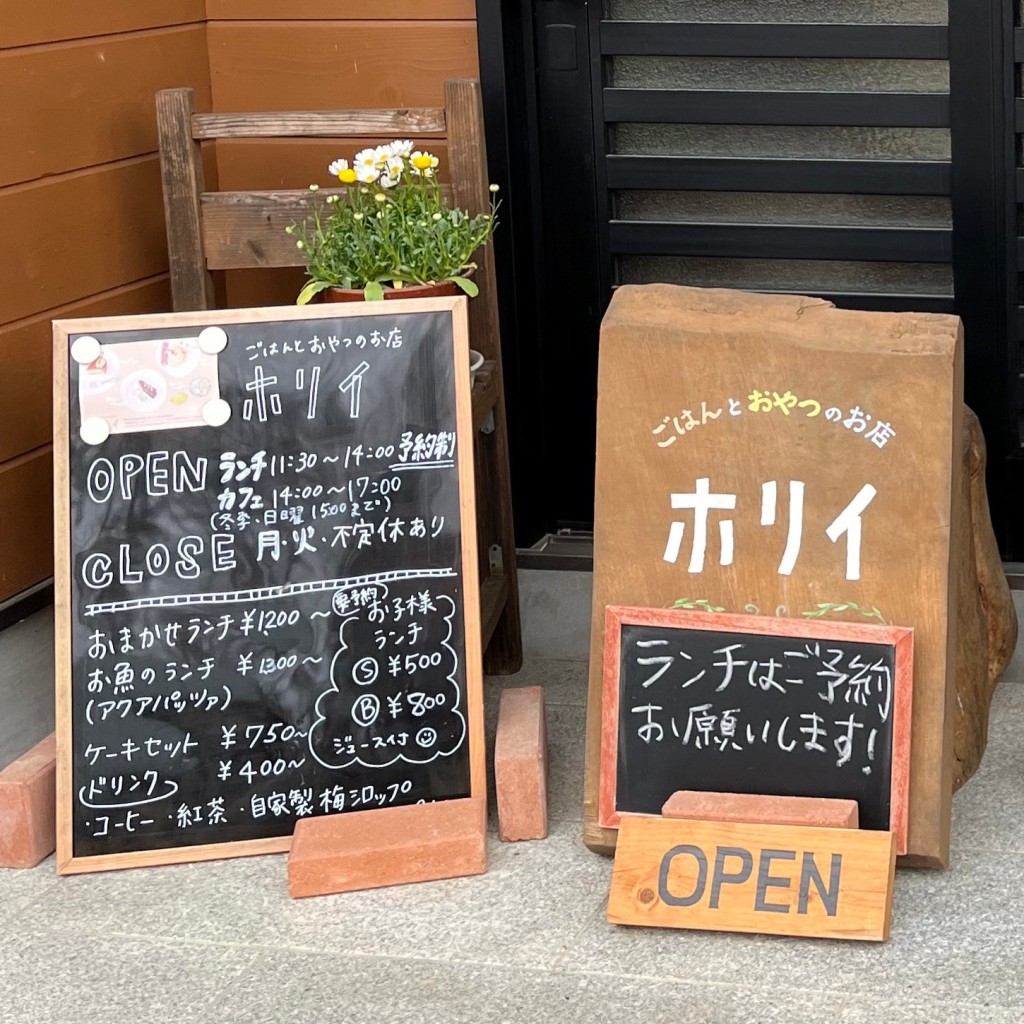 ごはんとおやつのお店
ホリイ
OPEN ランチ 11:30～14:00 予約制
カフェ 14:00～17:00
(冬季・日曜 15:00まで)
CLOSE 月・火・不定休あり
おまかせランチ ¥1,200～
お魚のランチ ¥1,300～
(アクアパッツァ)
ケーキセット ¥750～
ドリンク ¥400～
・コーヒー ・紅茶 ・自家製梅シロップ
要予約
お子様
ランチ
Ⓢ ¥500
Ⓑ ¥800
ジュース付
ごはんとおやつのお店
ホリイ
ランチはご予約
お願いします!
OPEN